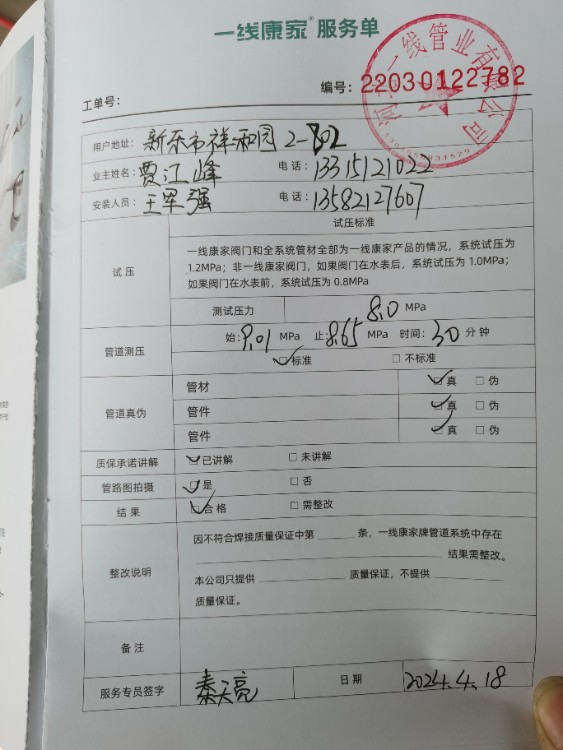 一线康家® 服务单
工单号:
编号: 22030122782
用户地址: 新乐市祥和园 2-802
业主姓名: 贾江峰 电话: 13315121022
安装人员: 王军强 电话: 13582127607
试压
试压标准
一线康家阀门和全系统管材全部为一线康家产品的情况，系统试压为
1.2MPa；非一线康家阀门，如果阀门在水表后，系统试压为 1.0MPa；
如果阀门在水表前，系统试压为 0.8MPa
测试压力 8.0 MPa
管道测压
始: 9.01 MPa 止: 8.65 MPa 时间: 30 分钟
☑标准 □不标准
管道真伪
管材 ☑真 □伪
管件 ☑真 □伪
管件 ☑真 □伪
质保承诺讲解 ☑已讲解 □未讲解
管路图拍摄 ☑是 □否
结果 ☑合格 □需整改
整改说明
因不符合焊接质量保证中第____条，一线康家牌管道系统中存在
____结果需整改。
本公司只提供____质量保证，不提供____
质量保证。
备注
服务专员签字 秦天亮 日期 2024.4.18